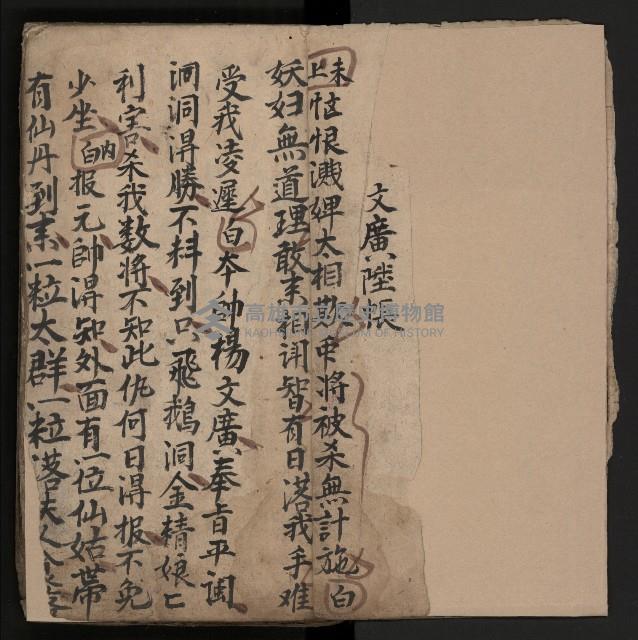 文廣陞帳
末上 怯恨濺婢太相欺串將被杀無計施 白
妖妇無道理敢来相詡智有日落我手难
受我凌遲 白 夲帥楊文廣奉旨平閩
洞洞淂勝不料到只飛鵝洞金精娘匕
利害杀我数将不知此仇何日淂报不免
少坐 内白 报元帥淂知外面有一位仙姑帯
有仙丹到来一粒太群一粒落夫人
高雄市立歷史博物館
KAOHSIUNG MUSEUM OF HISTORY